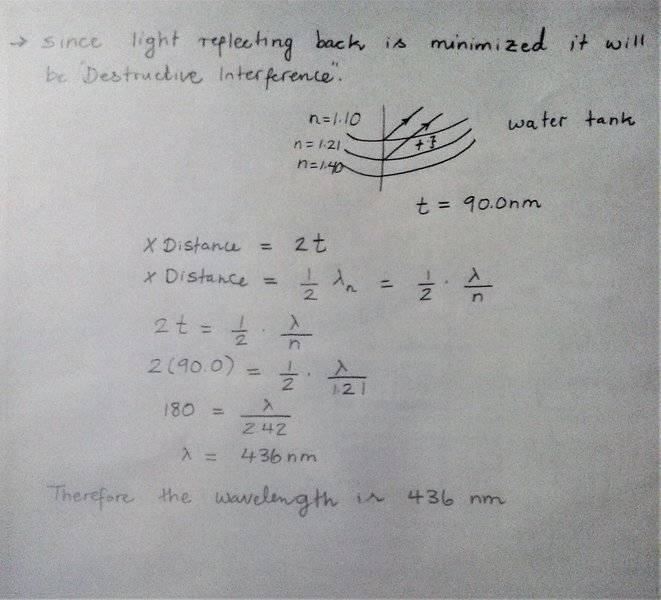 → since light reflecting back is minimized it will
be "Destructive Interference".
n=1.10
n=1.21
n=1.40
water tank
t = 90.0nm
x Distance = 2t
x Distance = 1/2 λn = 1/2 · λ/n
2t = 1/2 · λ/n
2(90.0) = 1/2 · λ/1.21
180 = λ/2.42
λ = 436nm
Therefore the wavelength is 436 nm